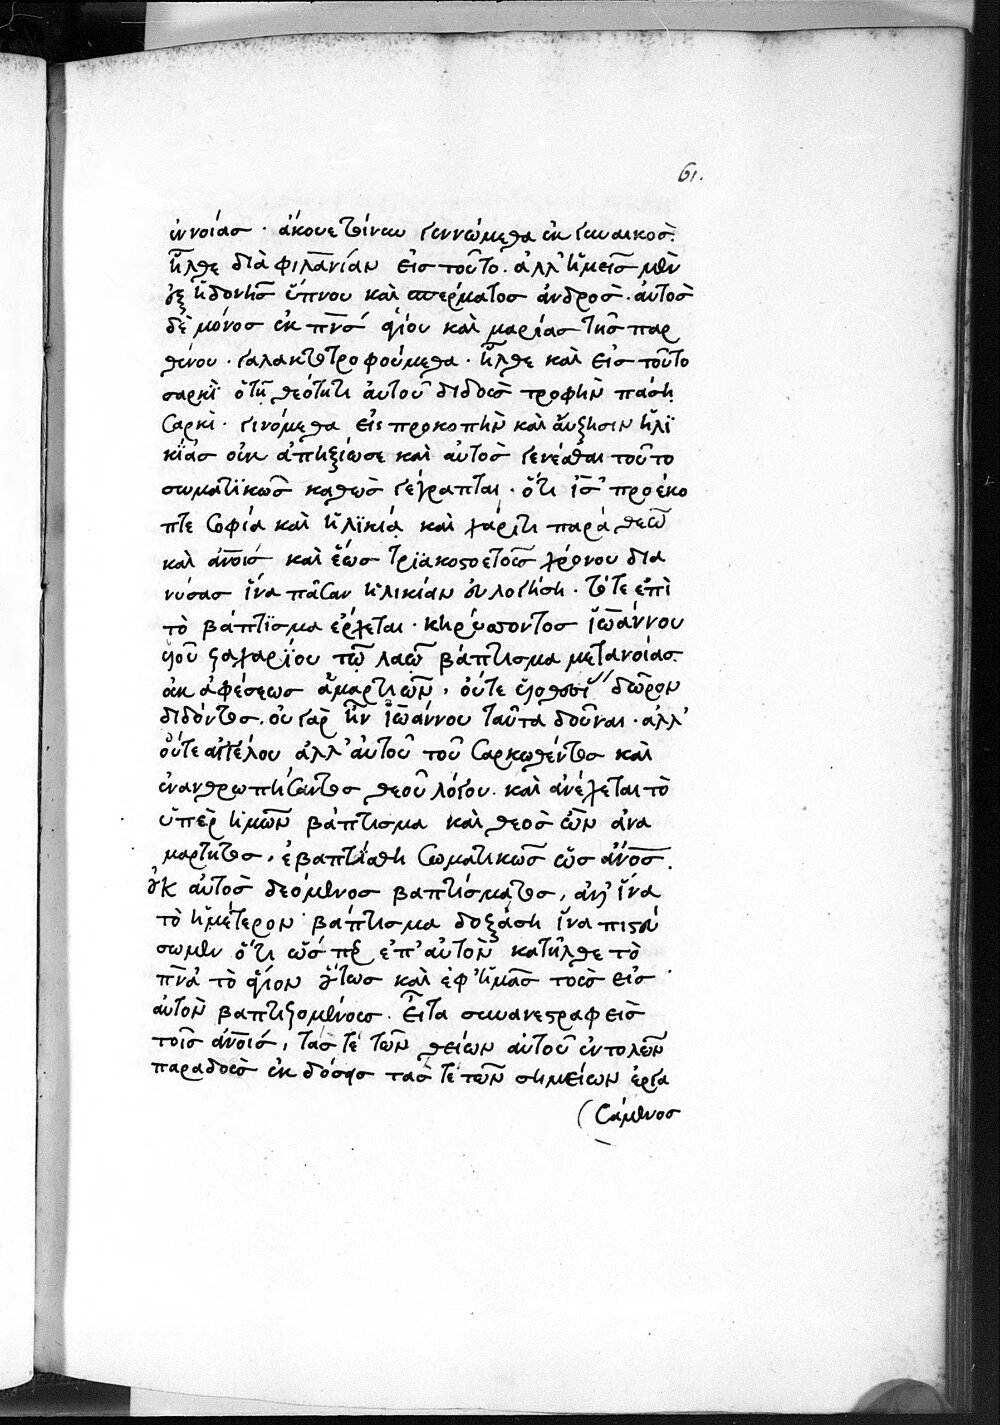 61.
ἐννοίας · ἄκουε τίνων γεννώμεθα ἐκ γυναικός.
ἦλθε διὰ φιλανίαν εἰς τοῦτο. ἀλλ' ἡμεῖς μὲν
ἐξ ἡδονῆς ὕπνου καὶ σπέρματος ἀνδρὸς · αὐτὸς
δὲ μόνος ἐκ πνς ἁγίου καὶ μαρίας τῆς παρ
θένου · γαλακτοτροφούμεθα · ἦλθε καὶ εἰς τοῦτο
σαρκὶ ὁ τῇ θεότητι αὐτοῦ διδοὺς τροφὴν πάσῃ
σαρκὶ · γινόμεθα εἰς προκοπὴν καὶ αὔξησιν ἡλϊ
κίας οὐκ ἀπηξίωσε καὶ αὐτὸς γενέσθαι τοῦτο
σωματϊκῶς καθὼς γέγραπται · ὅτι ἰς προέκο
πτε σοφία καὶ ἡλϊκιᾳ καὶ χάριτι παρὰ θεῶ
καὶ ἀνοις καὶ ἕως τρϊακοςοετοῦς χρόνου δια
νύσας ἵνα πᾶσαν ἡλικίαν εὐλογήσῃ · τότε ἐπὶ
τὸ βάπτϊσμα ἔρχεται · κηρύττοντος ἰωάννου
υἱοῦ ζαχαρϊου τῶ λαῶ βάπτισμα μετανοίας.
οὐκ ἀφέσεως ἁμαρτιῶν · οὔτε υἱοθεσι δῶρον
διδόντος. οὐ γαρ ἦν ἰωάννου ταῦτα δοῦναι · ἀλλ'
οὔτε αγγέλου ἀλλ' αὐτοῦ τοῦ σαρκωθέντος καὶ
ἐνανθρωπήσαντος θεοῦ λόγου · καὶ ἀνέχεται τὸ
ὑπὲρ ἡμῶν βάπτισμα καὶ θεὸς ὢν ἀνα
μαρτητος, ἐβαπτίσθη σωματικῶς ὡς ἄνος.
οὐκ αὐτὸς δεόμενος βαπτίσματος, ἀλλ' ἵνα
τὸ ἡμέτερον βάπτισμα δοξάσῃ ἵνα πιςεύ
σωμεν ὅτι ὥσπερ ἐπ' αὐτὸν κατῆλθε τὸ
πνα τὸ ἅγιον οὕτως καὶ ἐφ' ἡμᾶς τοὺς εἰς
αὐτὸν βαπτιζομένους · Εἶτα συνανεςραφεὶς
τοῖς ἀνοις, τάς τε τῶν θείων αὐτοῦ ἐντολῶν
παραδοὺς ἐκδόσεις τάς τε τῶν σημείων ἐργα
(σάμενος